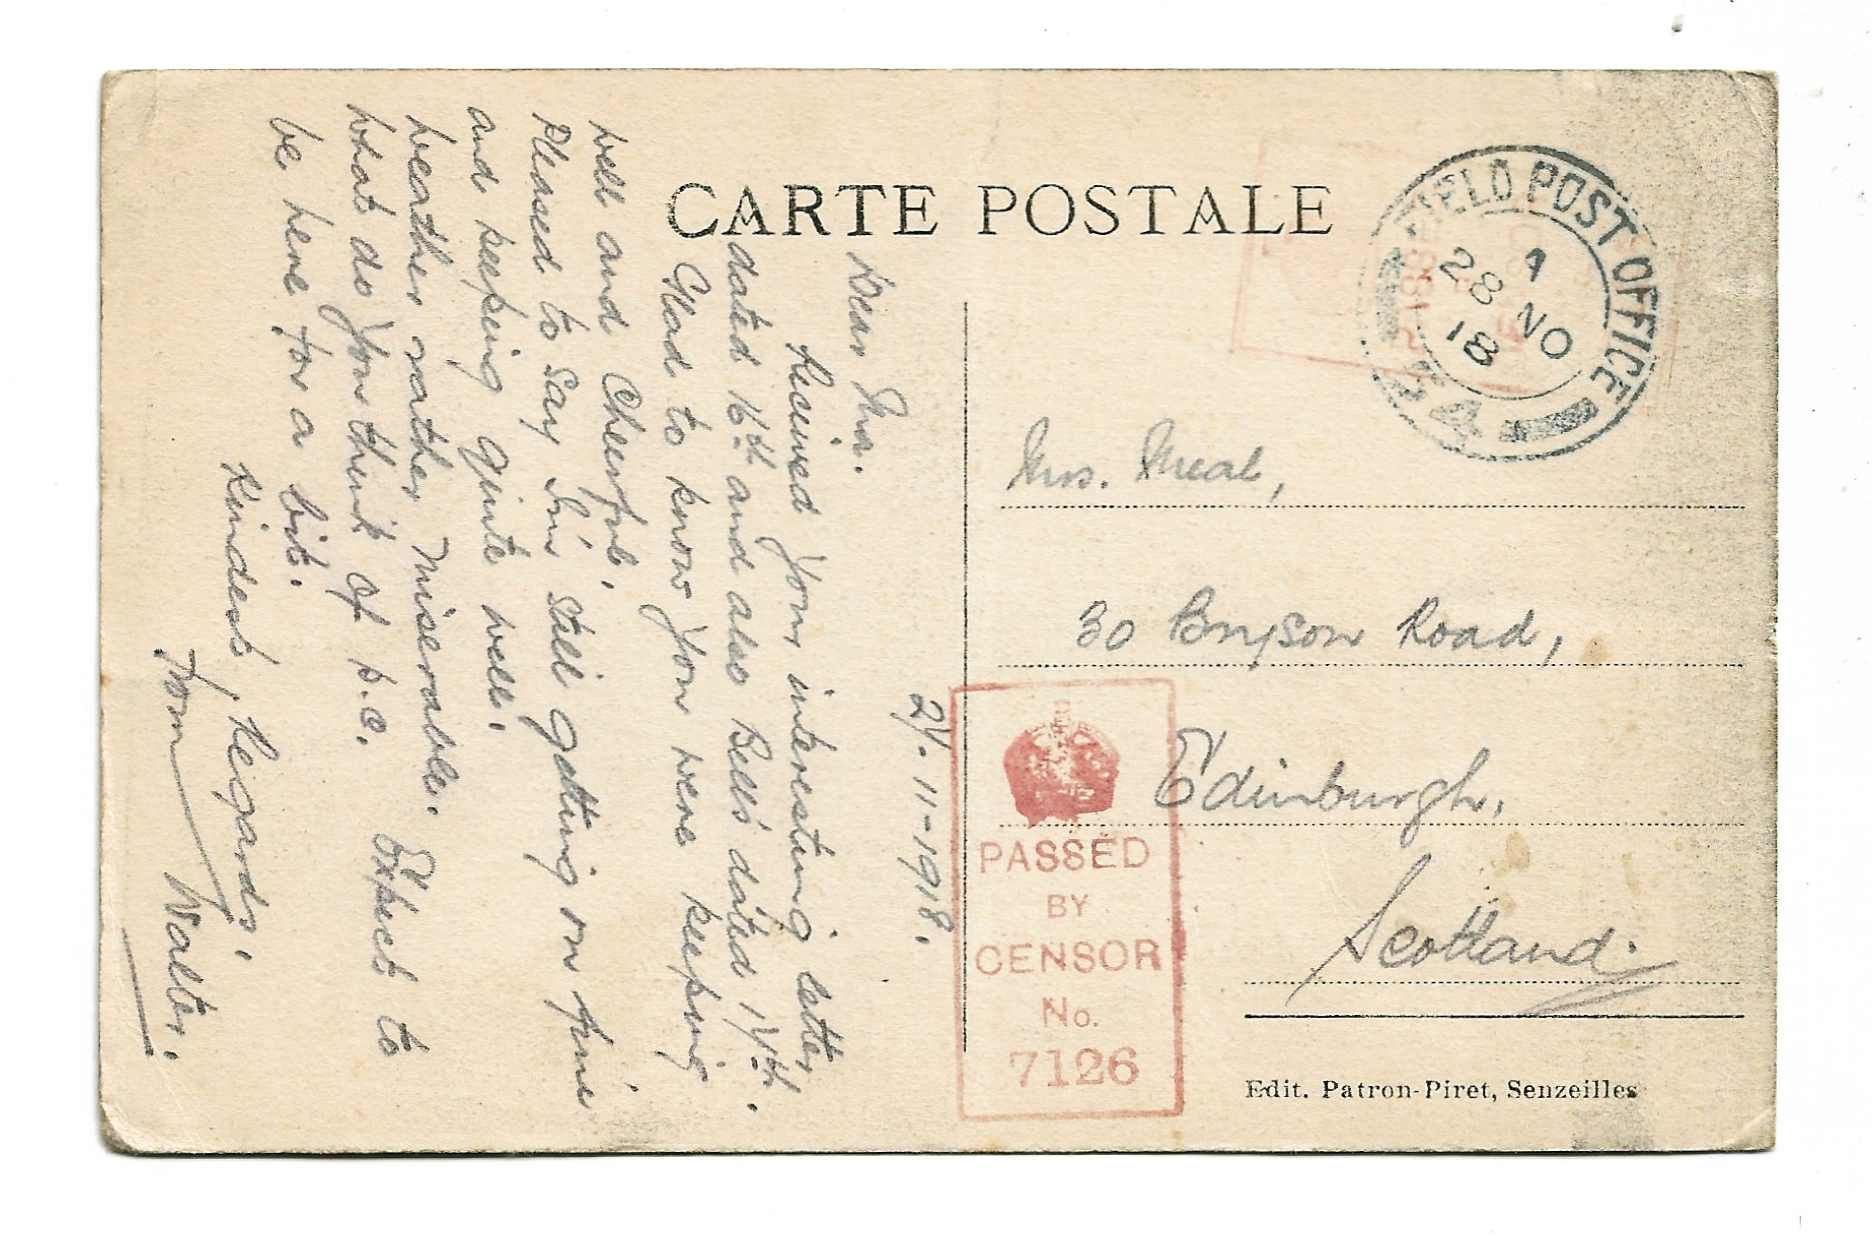 CARTE POSTALE
FIELD POST OFFICE
28 NO
18
27. 11-1918.
Dear Ma.
Received your interesting letter
dated 16th and also Bell's dated 17th.
Glad to know you were keeping
well and Cheerful.
Pleased to Say I'm still getting on fine
and keeping quite well.
Weather rather Miserable. Expect to
be here for a bit.
What do you think of p.c.
Kindest, Regards.
from Walter.
Mrs.
30 Bryson Road,
Edinburgh,
Scotland.
PASSED
BY
CENSOR
No.
7126
Edit. Patron-Piret, Senzeilles